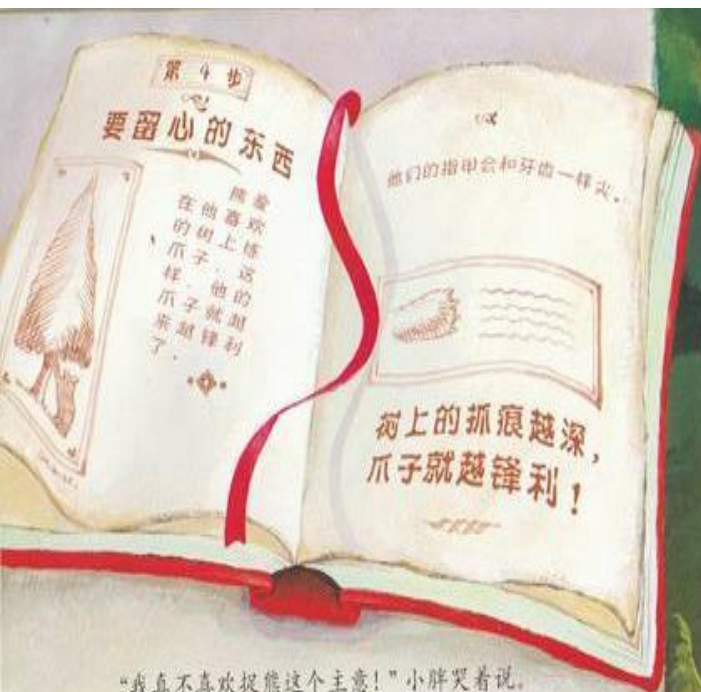 第4步
要留心的东西
熊爱
在他喜欢
的树上练
爪子，这
样，他的
爪子就越
来越锋利
了。
他们的指甲会和牙齿一样尖。
树上的抓痕越深，
爪子就越锋利！
“我真不喜欢捉熊这个主意！”小胖哭着说。